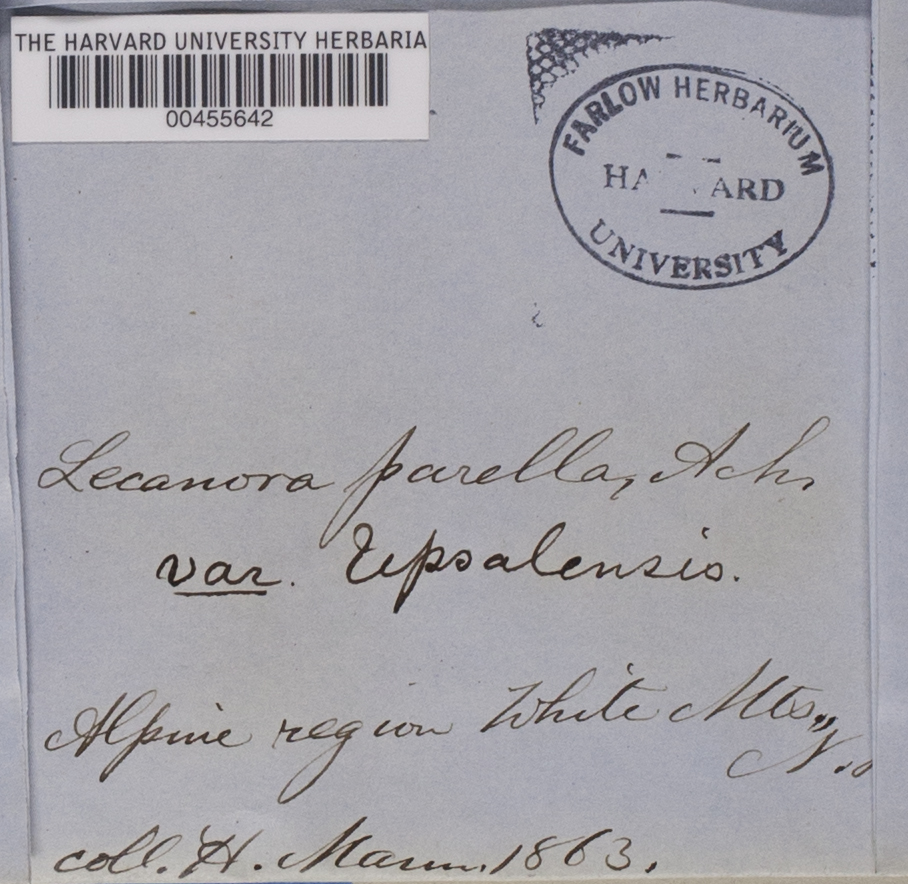 THE HARVARD UNIVERSITY HERBARIA
00455642
FARLOW HERBARIUM
HARVARD
UNIVERSITY
Lecanora parella, Ach.
var. Upsalensis.
Alpine region White Mts,,
N.
coll. H. Mann. 1863.